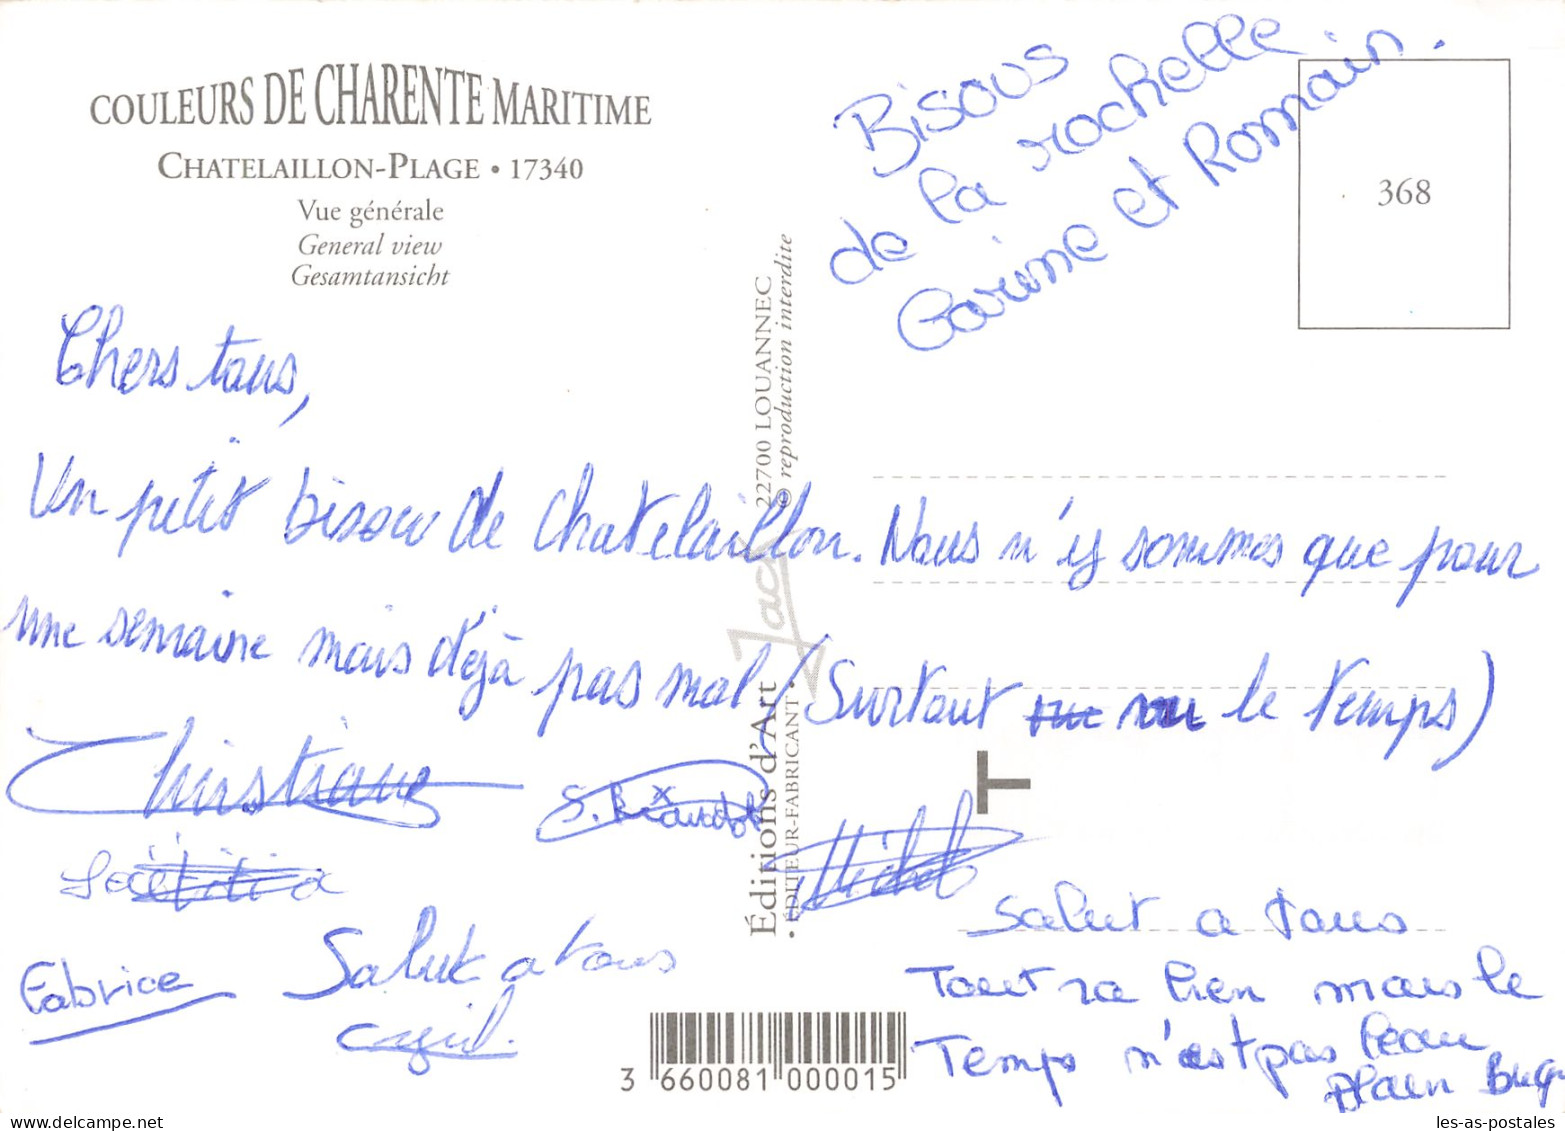 COULEURS DE CHARENTE MARITIME
CHATELAILLON-PLAGE • 17340
Vue générale
General view
Gesamtansicht
Bisous
de la rochelle
et Romain.
368
Chers tous,
Un petit bisou de Chatelaillon. Nous n'y sommes que pour
une semaine mais déjà pas mal (Surtout vu le temps)
Christiane
Michel
Laetitia
Fabrice
Salut a tous
Salut a tous
Tout va bien mais le
Temps n'est pas beau
Alain
Éditions d'Art Jack
22700 LOUANNEC
• ÉDITEUR-FABRICANT •
© reproduction interdite
T
3 660081 000015
les-as-postales